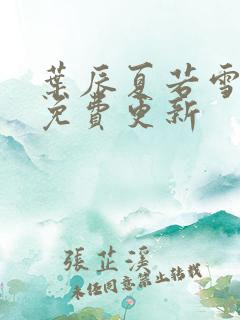 葉辰夏若雪
免費更新
張芷溪
未經同意禁止轉載